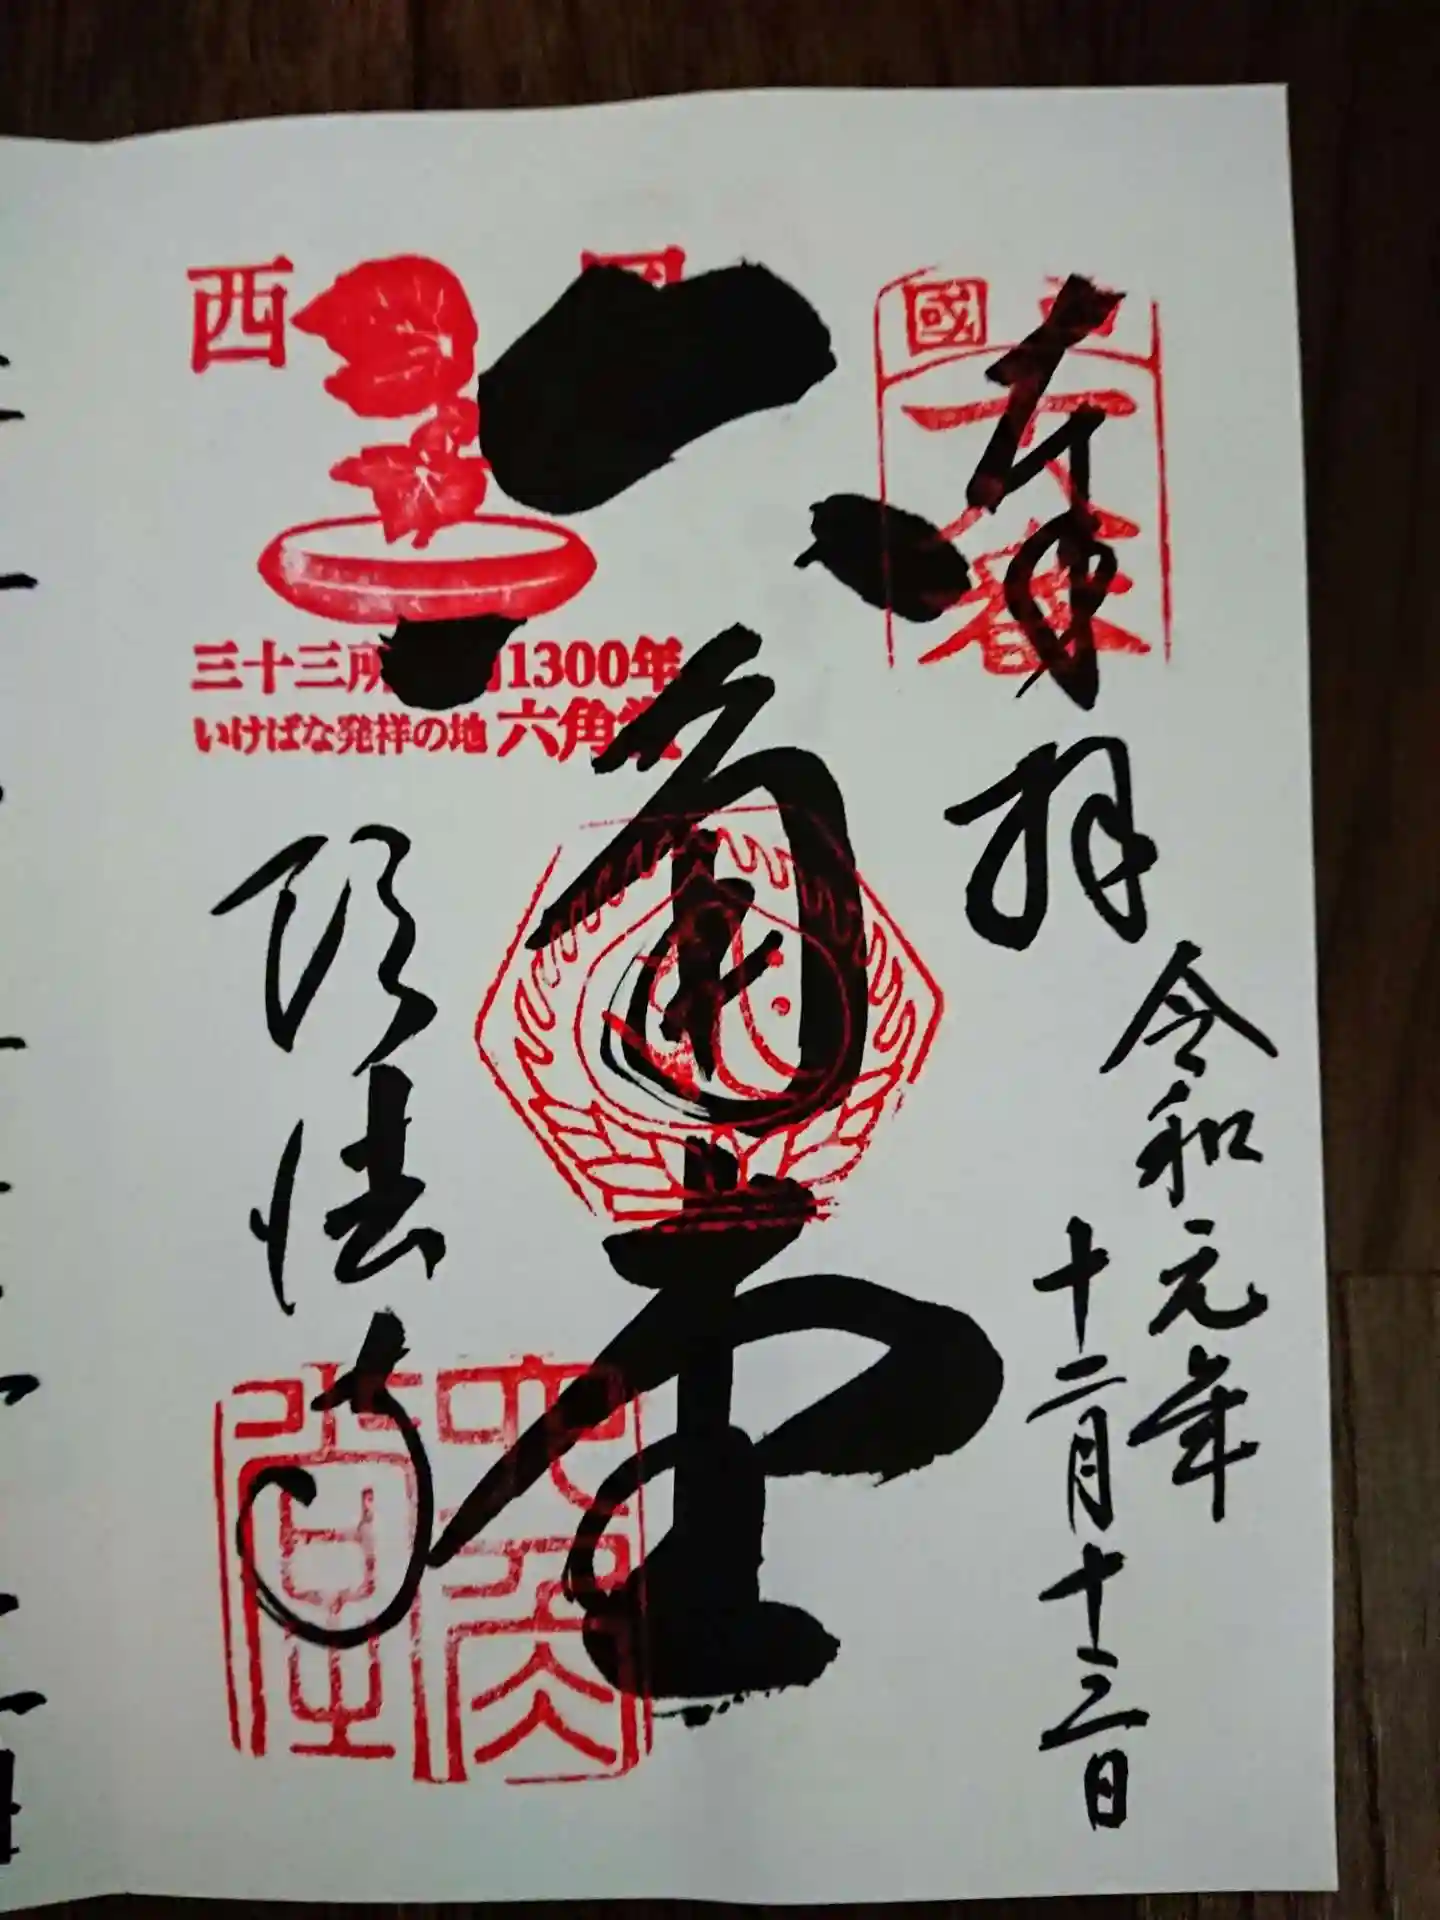 奉拝
令和元年
十二月十三日
六角堂
頂法寺
西国
三十三所
1300年
いけばな発祥の地 六角堂
六角堂